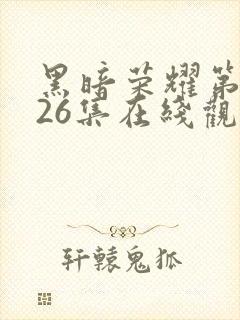 黑暗荣耀第
26集在綫觀
轩辕鬼狐